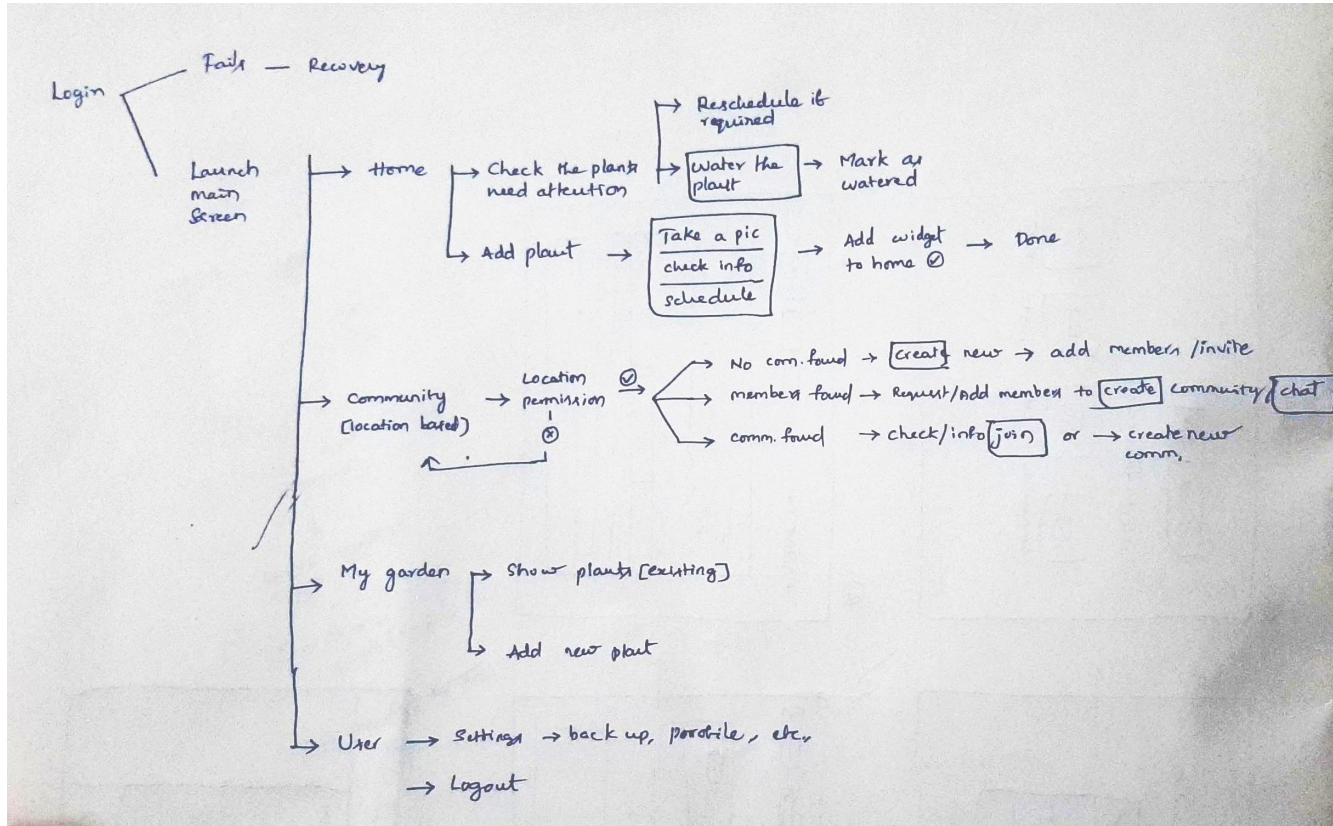 Fails — Recovery
Login
Launch
main
Screen
→ Home
→ Check the plants
need attention
→ Reschedule if
required
→ Water the
plant
→ Mark as
watered
→ Add plant →
Take a pic
check info
schedule
→ Add widget
to home
→ Done
→ Community
[location based]
→ Location
permission
→ No com. found → create new → add members / invite
→ members found → Request/Add members to create community/ chat
→ comm. found → check/info join or → create new
comm.
→ My garden
→ Show plants [existing]
→ Add new plant
→ User → Settings → back up, porofile, etc.,
→ Logout